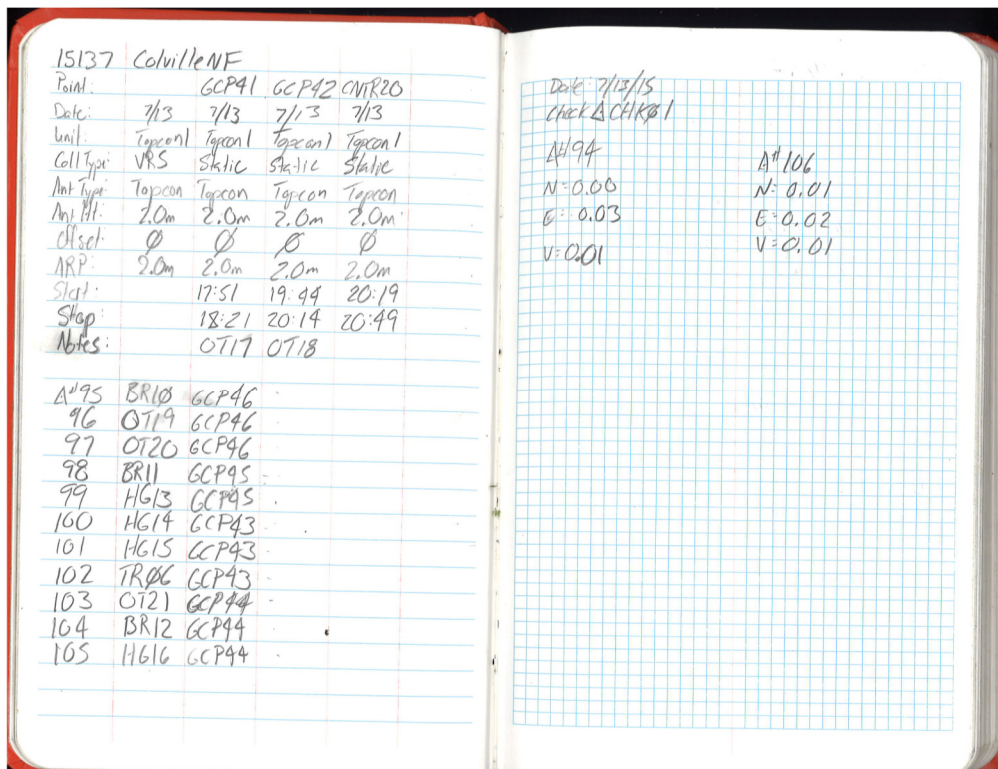 15137 Colville NF
Point: GCP41 GCP42 CNTR20
Date: 7/13 7/13 7/13 7/13
Unit: Topcon1 Topcon1 Topcon1 Topcon1
Coll Type: VRS Static Static Static
Ant Type: Topcon Topcon Topcon Topcon
Ant Ht: 2.0m 2.0m 2.0m 2.0m
Offset: Ø Ø Ø Ø
ARP: 2.0m 2.0m 2.0m 2.0m
Start: 17:51 19:44 20:19
Stop: 18:21 20:14 20:49
Notes: OT17 OT18
A#95 BR1Ø GCP46
96 OT19 GCP46
97 OT20 GCP46
98 BR11 GCP45
99 HG13 GCP45
100 HG14 GCP43
101 HG15 GCP43
102 TRØ6 GCP43
103 OT21 GCP44
104 BR12 GCP44
105 HG16 GCP44
Date: 7/13/15
Check Δ CHKØ1
A#94 A#106
N=0.00 N=0.01
E=0.03 E=0.02
V=0.01 V=0.01